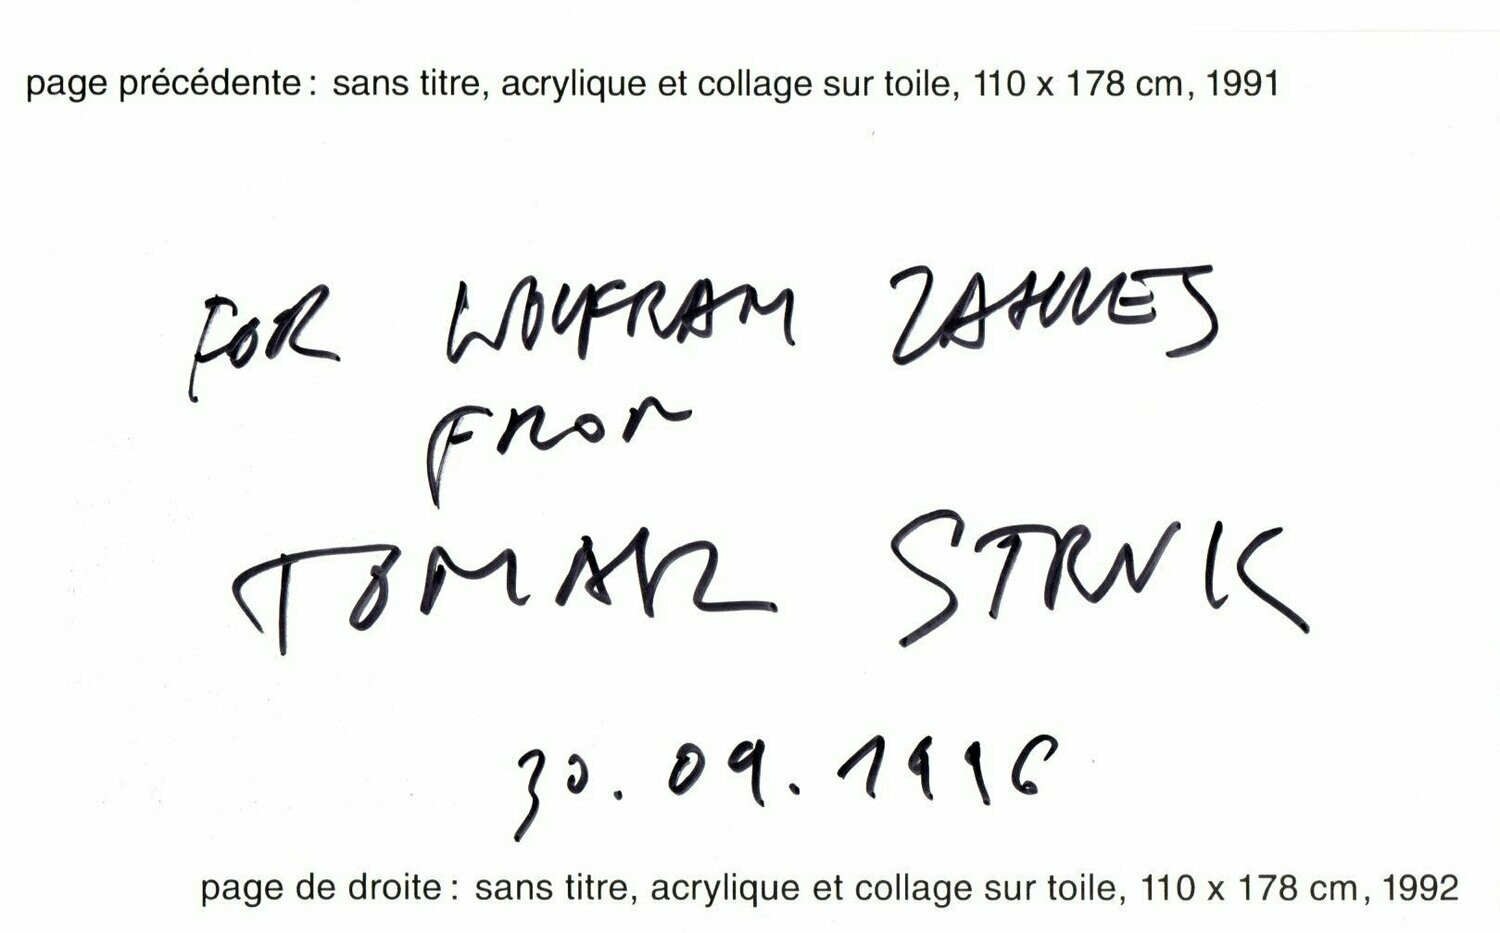 page précédente : sans titre, acrylique et collage sur toile, 110 x 178 cm, 1991
FOR WOLFRAM
FROM
TOMAR STRUK
30.09.1996
page de droite : sans titre, acrylique et collage sur toile, 110 x 178 cm, 1992